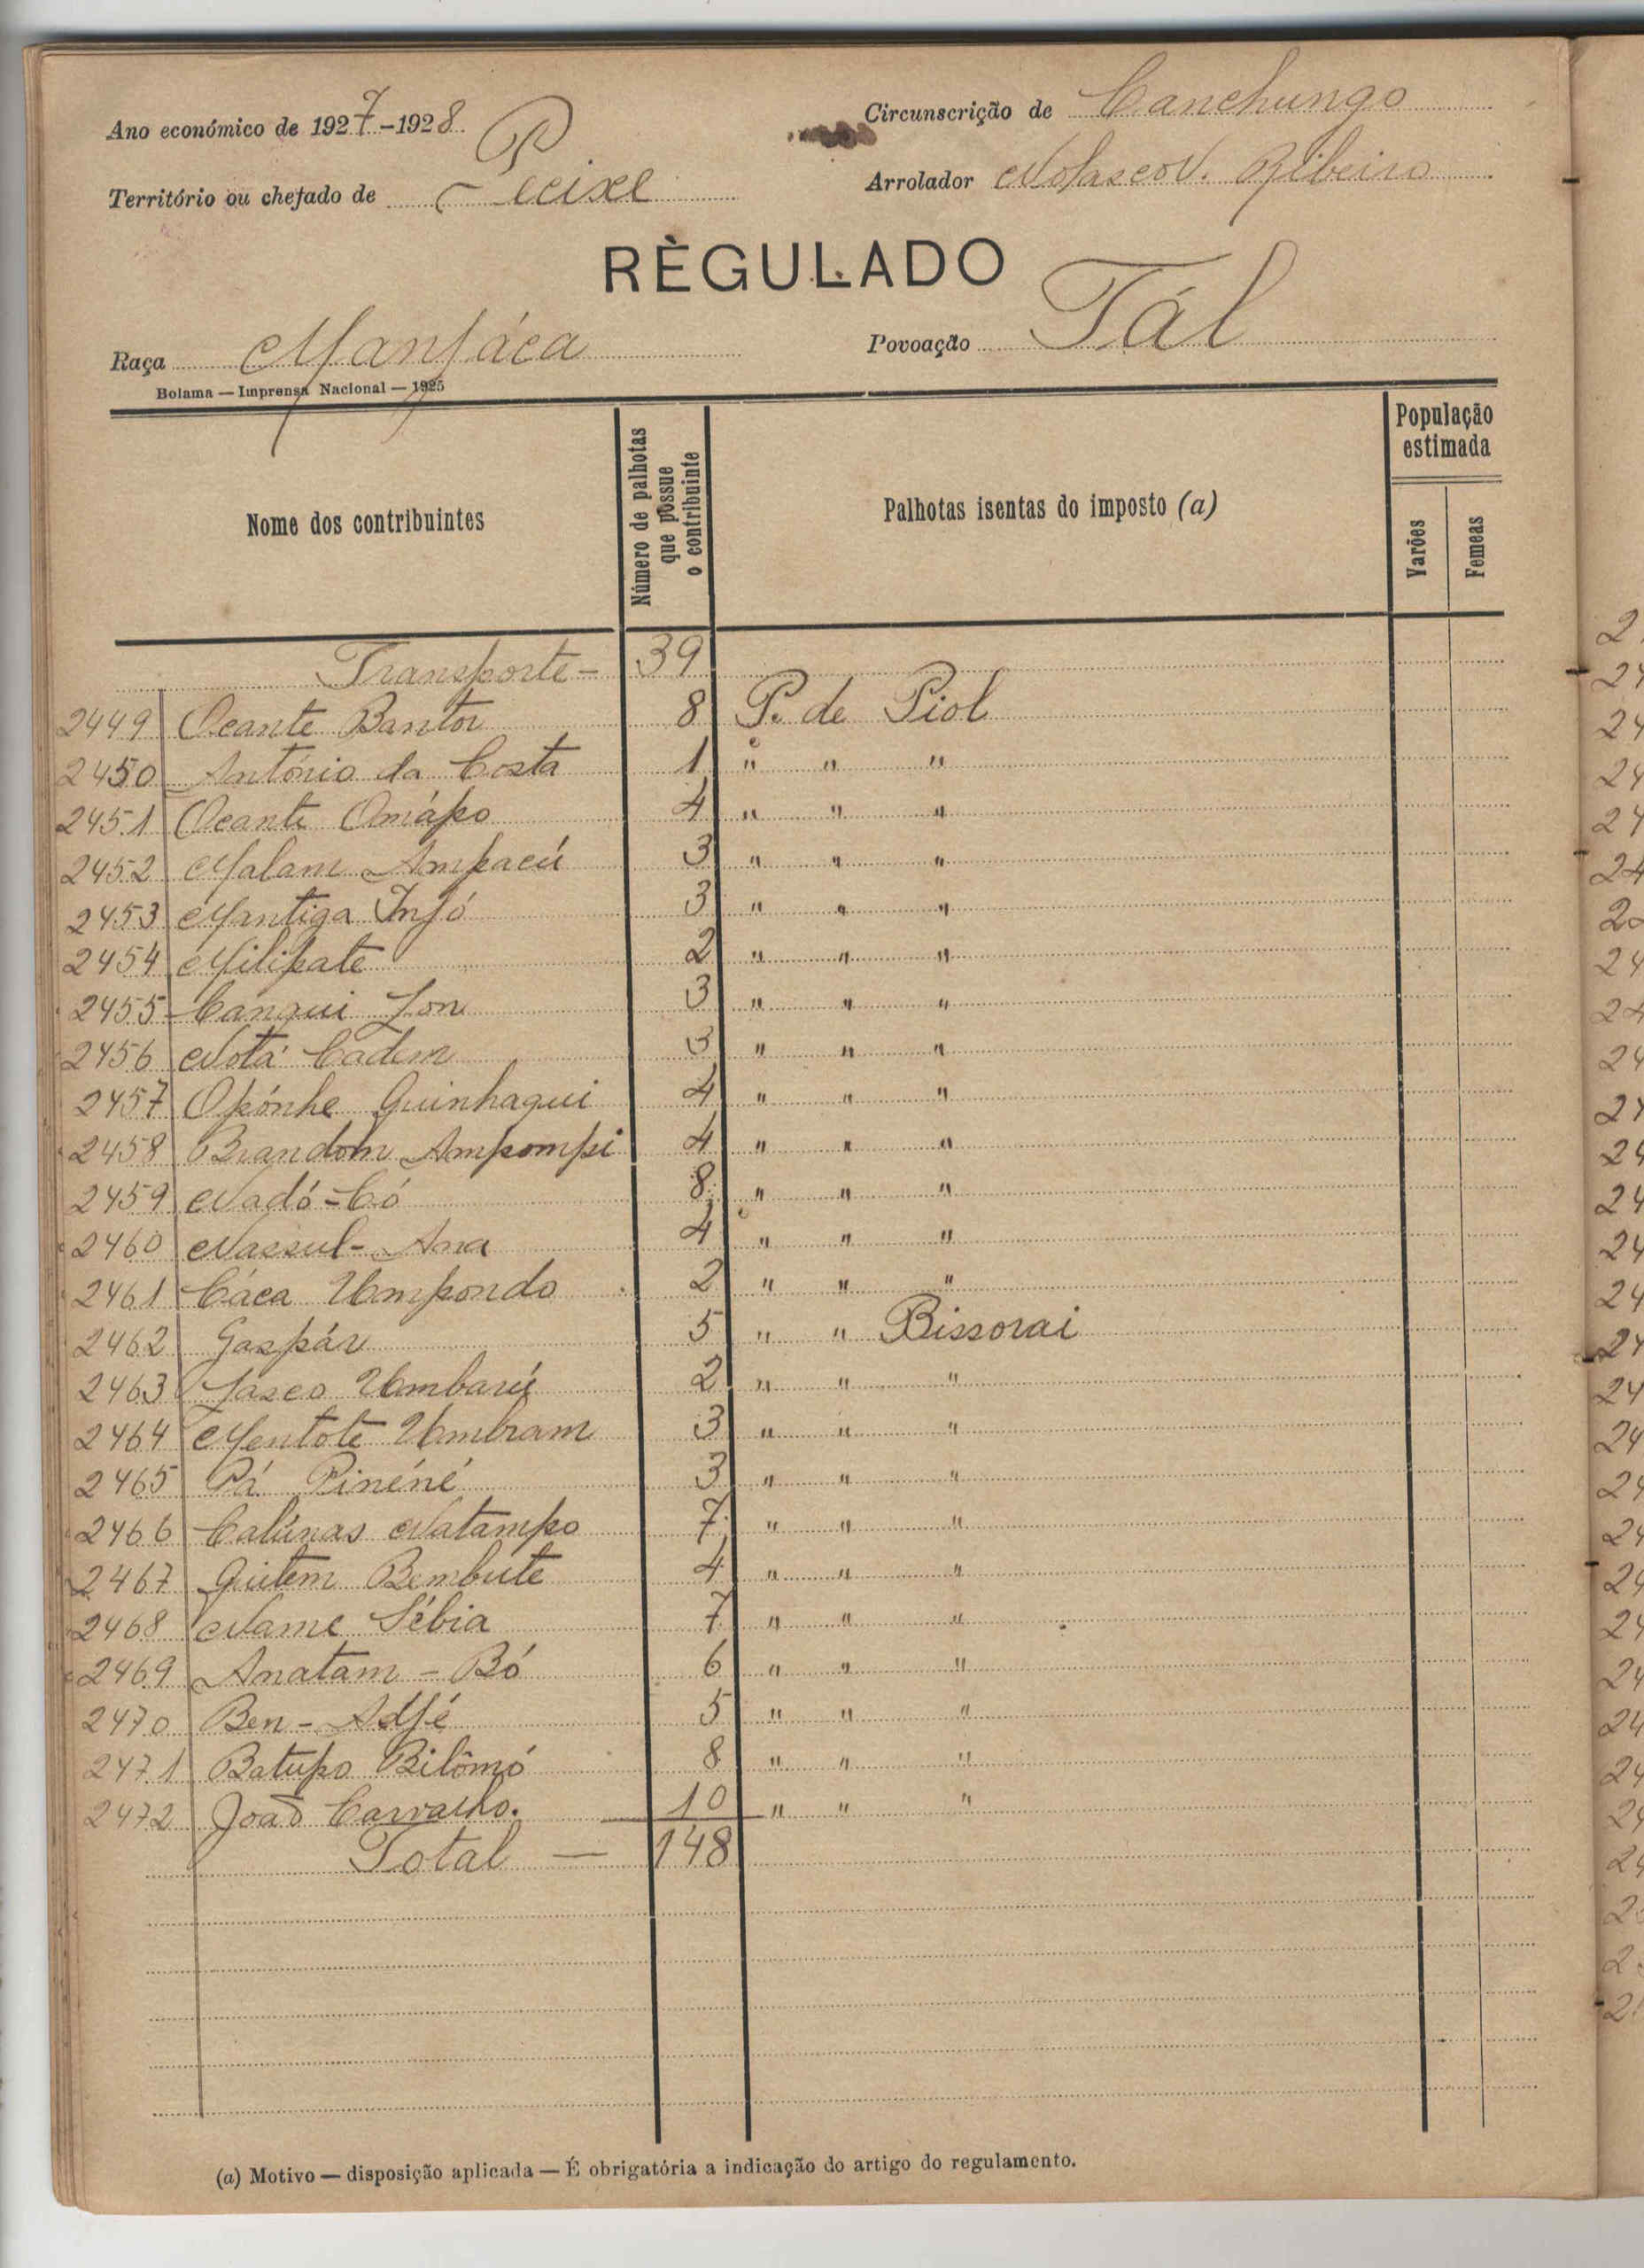 Ano económico de 1927-1928.
Circunscrição de Canchungo
Território ou chefado de Peixe
Arrolador Nolasco N. Ribeiro
RÈGULADO
Raça Manjáca
Povoação Tál
Bolama — Imprensa Nacional — 1925
Nome dos contribuintes
Número de palhotas que possue o contribuinte
Palhotas isentas do imposto (a)
População estimada
Varões
Femeas
Transporte - 39
2449 Ocante Bantor 8 P. de Piol
2450 António da Costa 1 " " "
2451 Ocante Omápo 4 " " "
2452 Malam Ampacú 3 " " "
2453 Mantiga Injó 3 " " "
2454 Milipate 2 " " "
2455 Cangui Jon 3 " " "
2456 Notá Cadem 3 " " "
2457 Opónhe Guinhagui 4 " " "
2458 Brandom Ampompi 4 " " "
2459 Nadó-Có 8 " " "
2460 Nassul- Ana 4 " " "
2461 Cáca Umpondo 2 " " "
2462 Gaspár 5 " " Bissorai
2463 Jasco Umbarú 2 " " "
2464 Mentote Umbram 3 " " "
2465 Pá Pinéné 3 " " "
2466 Calúnas Natampo 7 " " "
2467 Guitem Bembute 4 " " "
2468 Name Sébia 7 " " "
2469 Anatam - Bó 6 " " "
2470 Ben - Adjé 5 " " "
2471 Batupo Bilômó 8 " " "
2472 João Carvalho. 10 " " "
Total — 148
(a) Motivo — disposição aplicada — É obrigatória a indicação do artigo do regulamento.